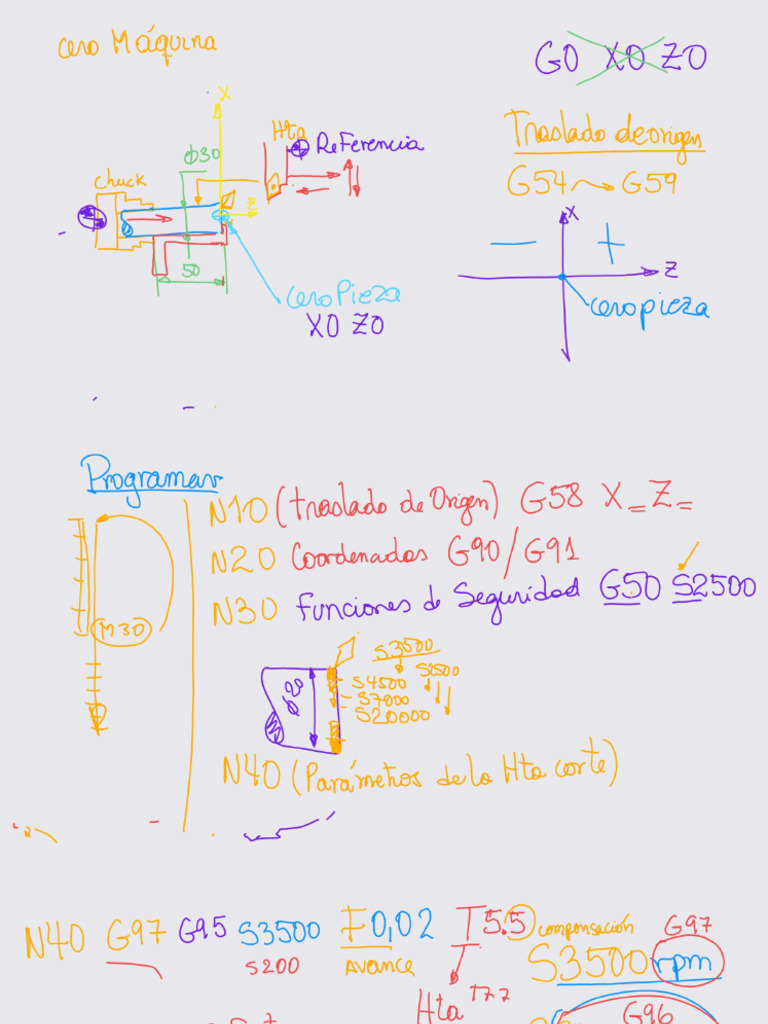 Cero Máquina
G0 X0 Z0
Traslado de origen
G54 G59
X
Z
cero pieza
X
Hta
Referencia
Φ30
Chuck
Z
50
Cero Pieza
X0 Z0
Programar
M30
N10 (Traslado de Origen) G58 X= Z=
N20 Coordenadas G90/G91
N30 Funciones de Seguridad G50 S2500
S3500
S4500 S2500
S7000
S20000
Φ20
N40 (Parámetros de la Hta corte)
N40 G97 G95 S3500 F0,02 T5.5 compensación G97
S200 Avance S3500 rpm
Hta T7.7
G96